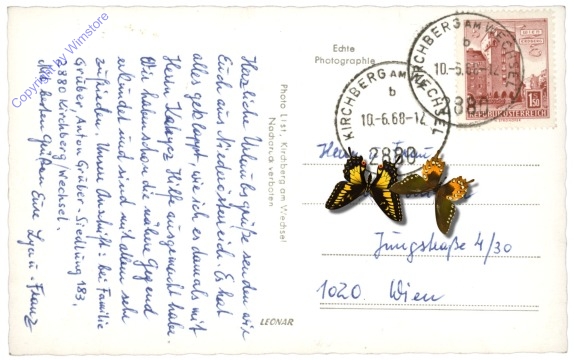 Copyright by Wimstore
Herzliche Urlaubsgrüße senden wir
Euch aus Niederösterreich. Es hat
alles geklappt, wie ich es damals mit
Herrn Hilfe ausgemacht habe.
Wir haben schon die nähere Gegend
erkundet und sind mit allem sehr
zufrieden. Unsere Anschrift: bei Familie
Gruber, Anton Gruber-Siedlung 183,
2880 Kirchberg/Wechsel.
Mit besten Grüßen Eure Franz
Photo List, Kirchberg am Wechsel
Nachdruck verboten
LEONAR
Echte
Photographie
KIRCHBERG AM WECHSEL
b
10.-6.68-12
2880
KIRCHBERG AM WECHSEL
b
10.-6.68-12
2880
1.50
REPUBLIK ÖSTERREICH
Jungstraße 4/30
1020 Wien